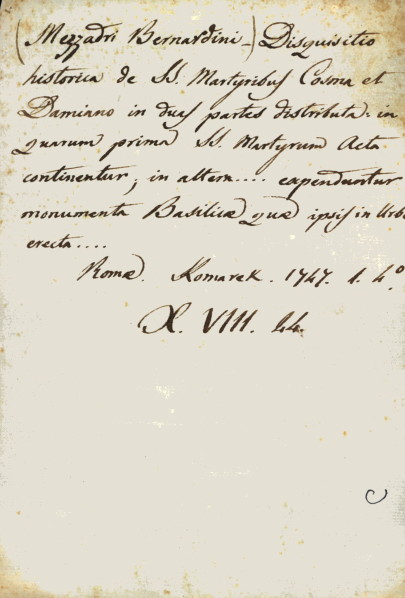 (Mezzadri Bernardini-) Disquisitio
historica de SS. Martyribus Cosma et
Damiano in duas partes distributa: in
quarum prima SS. Martyrum Acta
continentur; in altera.... expenduntur
monumenta Basilicæ quæ ipsis in Urbe
erecta....
Romæ. Komarek. 1747. 1. 4.º
X. VIII. 44.